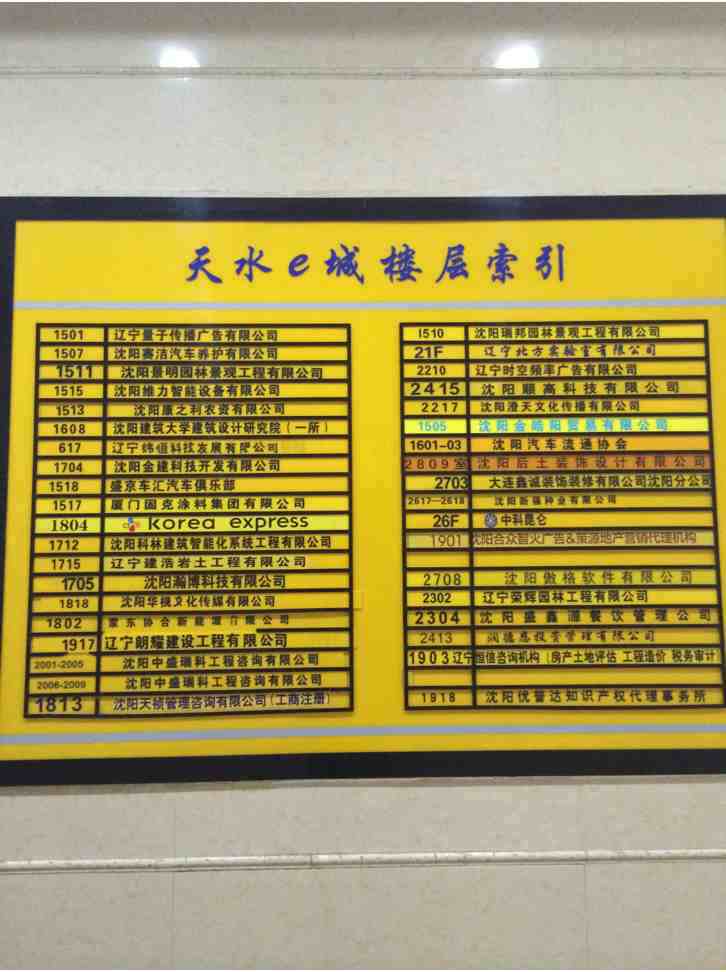 天水e城楼层索引
1501 辽宁量子传播广告有限公司
1507 沈阳赛洁汽车养护有限公司
1511 沈阳景明园林景观工程有限公司
1515 沈阳维力智能设备有限公司
1513 沈阳康之利农资有限公司
1608 沈阳建筑大学建筑设计研究院(一所)
617 辽宁纬恒科技发展有限公司
1704 沈阳金建科技开发有限公司
1518 盛京车汇汽车俱乐部
1517 厦门固克涂料集团有限公司
1804 korea express
1712 沈阳科林建筑智能化系统工程有限公司
1715 辽宁建浩岩土工程有限公司
1705 沈阳瀚博科技有限公司
1818 沈阳华视文化传媒有限公司
1802 东协合新能源 有限公司
1917 辽宁朗耀建设工程有限公司
2001-2005 沈阳中盛瑞科工程咨询有限公司
2006-2009 沈阳中盛瑞科工程咨询有限公司
1813 沈阳天祯管理咨询有限公司(工商注册)
1510 沈阳瑞邦园林景观工程有限公司
21F 辽宁北方实验室有限公司
2210 辽宁时空频率广告有限公司
2415 沈阳顺高科技有限公司
2217 沈阳澄天文化传播有限公司
1505 沈阳金皓阳贸易有限公司
1601-03 沈阳汽车流通协会
2809室 沈阳后土装饰设计有限公司
2703 大连鑫诚装饰装修有限公司沈阳分公司
2617-2618 沈阳新强种业有限公司
26F 中科昆仑
1901 沈阳合众智火广告&策源地产营销代理机构
2708 沈阳傲格软件有限公司
2302 辽宁荣辉园林工程有限公司
2304 沈阳盛鑫源餐饮管理公司
2413 润德恩投资管理有限公司
1903 辽宁恒信咨询机构(房产土地评估 工程造价 税务审计
1918 沈阳优誉达知识产权代理事务所